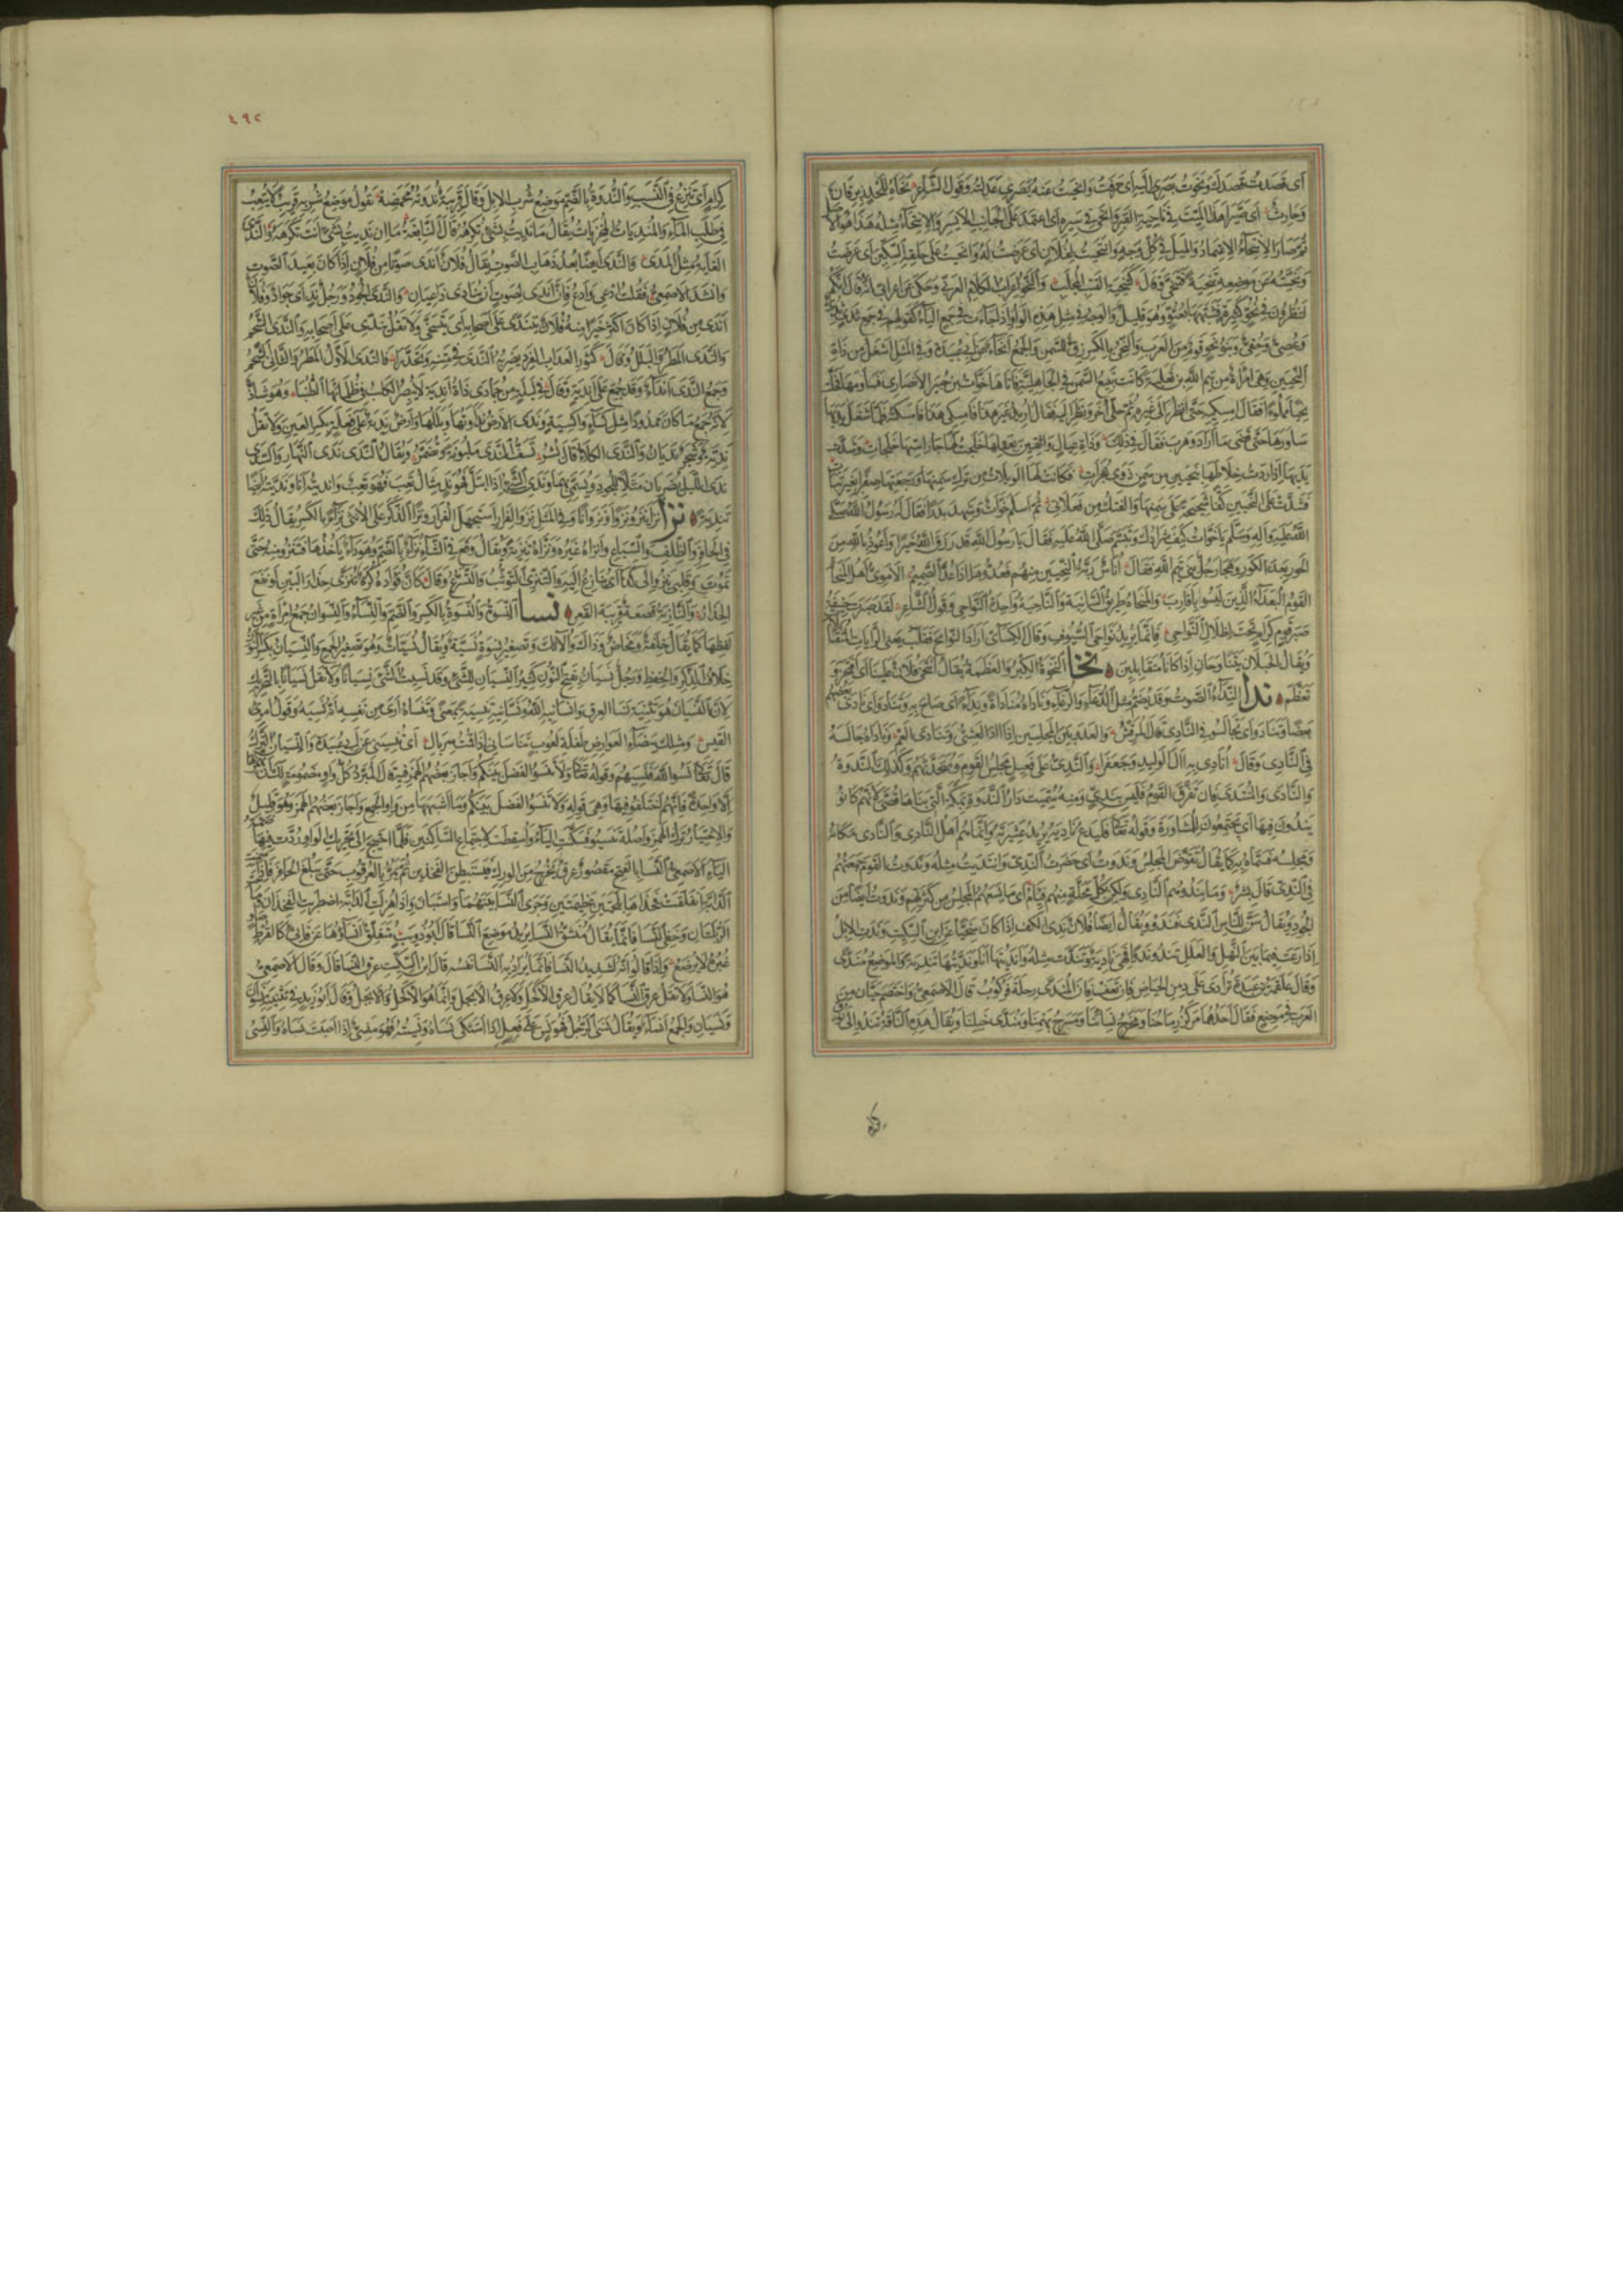 أى قصدت قصدك ونحوت بصرى اليه أى صرفت وانحيت عنه بصرى عدلته وقول الشاعر نحاه للحد زبرقان
وحارث أى صيرا هذا الميت فى ناحية القبر وانحى فى سيره أى اعتمد على الجانب الأيسر والانتحاء مثله هذا هو الأصل
ثم صار الانتحاء الاعتماد والميل فى كل وجه وانتحيت لفلان أى عرضت له وانحيت على حلقه السكين أى عرضت
ونحيته عن موضعه تنحية فتنحى وقال كتنحية القتب المجلب والنحو اعراب الكلام العربى وحكى عن اعرابى أنه قال انكم
لتنظرون فى نحو كثيرة فشبهها بعتو وهو قليل والوجه فى مثل هذه الواو اذا جاءت فى جمع الياء كقولهم فى جمع ثدى ثدى
وعصى وحقى وبنو نحو قوم من العرب والنحى بالكسر زق للسمن والجمع انحاء عن ابى عبيدة وفى المثل اشغل من ذات
النحيين وهى امرأة من تيم الله بن ثعلبة كانت تبيع السمن فى الجاهلية فاتاها خوات بن جبير الانصارى فساومها فحلت
نحيا مملوءا فقال امسكيه حتى انظر الى غيره ثم حل آخر ونظر اليه فقال اريد غير هذا فامسكى هذا فامسكته فلما شغل يديها
ساورها حتى قضى ما اراد وهرب فقال فى ذلك وذات عيال واثقين بعقلها خلجت لها جار استها خلجات وشدت
يديها اذ اردت خلاطها بنحيين من سمن ذوى عجرات فكانت لها الويلات من ترك سمنها ورجعتها صفرا بغير بتات
فشدت على النحيين كفا شحيحة على سمنها والفتك من فعلاتى ثم اسلم خوات وشهد بدرا فقال له رسول الله صلى
الله عليه وآله وسلم يا خوات كيف شرادك وتبسم صلى الله عليه فقال يا رسول الله قد رزق الله خيرا واعوذ بالله من
الحور بعد الكور وهجا رجل بنى تيم الله فقال اناس ربة النحيين منهم فعدوها اذا عد الصميم الاموى اهل المنحاة
القوم البعداء الذين ليسوا باقارب والمنحاة طريق السانية والناحية واحدة النواحى وقول الشاعر لقد صبرت حنيفة
صبر قوم كرام تحت اظلال النواحى فانما يريد نواحى السيوف وقال الكسائى اراد النوائح فقلب يعنى الرايات المتقابلات
ويقال الجبلان يتناوحان اذا كانا متقابلين نخا النخوة الكبر والعظمة يقال انتخى فلان علينا أى افتخر و
تعظم ندا النداء الصوت وقد يضم مثل الدعاء والرغاء وناداه مناداة ونداء أى صاح به وتنادوا أى نادى بعضهم
بعضا وتنادوا أى تجالسوا فى النادى قال المرقش والعدو بين المجلسين اذا آد العشى وتنادى العم وناداه جالسه
فى النادى وقال أنادى به آل الوليد وجعفرا والندى على فعيل مجلس القوم ومتحدثهم وكذلك الندوة
والنادى والمنتدى فان تفرق القوم فليس بندى ومنه سميت دار الندوة بمكة التى بناها قصى لانهم كانوا
يندون فيها أى يجتمعون للمشاورة وقوله تعالى فليدع ناديه يريد عشيرته وانما هم اهل النادى والنادى مكانه
ومجلسه فسماه به كما يقال تقوض المجلس وندوت أى حضرت الندى وانتديت مثله وندوت القوم جمعتهم
فى الندى قال بشر وما يندوهم النادى ولكن بكل محلة منهم فئام أى ما يسعهم المجلس من كثرتهم وندوت ايضا من
الجود ويقال سن للناس الندى فندوا ويقال ايضا فلان ندى الكف اذا كان سخيا عن ابن السكيت وندت الابل
اذا رعت فيما بين النهل والعلل تندو ندوا فهى نادية وتندت مثله واندىتها انا ونديتها تندية والموضع مندى
وقال علقمة بن عبدة ترادى على دمن الحياض فان تعف فان المندى رحلة فركوب قال الاصمعى واختصم حيان من
العرب فى موضع فقال احدهما مركز رماحنا ومخرج نسائنا ومسرح بهمنا ومندى خيلنا ويقال هذه الناقة تندو الى نوق
كرام
٤٩٢
كرام أى تنزع فى النسب والندوة بالضم موضع شرب الابل وقال قريبة ندوته من محمضه يقول موضع شربه قريب لا يتعب
فى طلب الماء والمنديات المخزيات يقال ما نديت بشىء تكرهه قال النابغة ما ان نديت بشىء انت تكرهه والندى
الغاية مثل المدى والندى ايضا بعد ذهاب الصوت يقال فلان اندى صوتا من فلان اذا كان بعيد الصوت
وانشد الاصمعى فقلت ادعى وادع فان اندى لصوت ان ينادى داعيان والندى الجود ورجل ند أى جواد وفلان
اندى من فلان اذا كان اكثر خيرا منه وفلان يتندى على اصحابه أى يتسخى ولا تقل يندى على اصحابه والندى الشحم
والندى المطر والبلل وقال كثور العداب الفرد يضربه الندى تعلى الندى فى متنه وتحدرا فالندى الاول المطر والثانى الشحم
وجمع الندى انداء وقد جمع على اندية وقال فى ليلة من جمادى ذات اندية لا يبصر الكلب من ظلمائها الطنبا وهو شاذ
لانه جمع ما كان ممدودا مثل كساء واكسية وندى الارض نداوتها وبللها وارض ندية على فعلة بكسر العين ولا تقل
ندية وشجر نديان والندى الكلأ قال بشر تسف الندى ملبونة وتضمر ويقال الندى ندى النهار والسدى
ندى الليل يضربان مثلا للجود ويسمى بهما وندى الشىء اذا ابتل فهو ند مثال تعب فهو تعب وانديته انا ونديته ايضا
تندية نزا نزا ينزو نزوا ونزوانا وفى المثل نزو الفرار استجهل الفرار ونزا الذكر على الانثى نزاء بالكسر يقال ذلك
فى الحافر والظلف والسباع وانزاه غيره ونزاه تنزية ويقال وقع فى الشاء نزاء بالضم وهو داء ياخذها فتنزو منه حتى
تموت وقلبى ينزو الى كذا أى ينازع اليه والتنزى التوثب والتسرع وقال كان فؤاده كرة تنزى حذار البين لو نفع
الحذار والنازية قصعة قريبة القعر نسا النسوة والنسوة بالكسر والضم والنساء والنسوان جمع امرأة من غير
لفظها كما يقال خلفة ومخاض وذلك واولئك وتصغير نسوة نسية ويقال نسيات وهو تصغير الجمع والنسيان بكسر النون
خلاف الذكر والحفظ ورجل نسيان بفتح النون كثير النسيان للشىء وقد نسيت الشىء نسيانا ولا تقل نسيانا بالتحريك
لان النسيان هو تثنية نسا العرق وانسانيه الله ونسانيه تنسية بمعنى وتناساه أرى من نفسه انه نسيه وقول امرئ
القيس ومثلك بيضاء العوارض طفلة لعوب تناسانى اذا قمت سربالى أى تنسينى عن ابى عبيدة والنسيان الترك
قال تعالى نسوا الله فنسيهم وقوله تعالى ولا تنسوا الفضل بينكم واجاز بعضهم الهمز فيه قال المبرد كل واو مضمومة لك ان تهمزها
الا واحدة فانهم اختلفوا فيها وهى قوله ولا تنسوا الفضل بينكم وما اشبهها من واو الجمع واجاز بعضهم الهمز وهو قليل
والاختيار ترك الهمز واصله تنسيوا فسكنت الياء واسقطت لاجتماع الساكنين فلما احتيج الى تحريك الواو ردت فيها ضمة
الياء الاصمعى النسا بالفتح مقصور عرق يخرج من الورك فيستبطن الفخذين ثم يمر بالعرقوب حتى يبلغ الحافر فاذا سمنت
الدابة انفلقت فخذاها بلحمتين عظيمتين وجرى النسا بينهما واستبان واذا هزلت الدابة اضطربت الفخذان وماجت
الربلتان وخفى النسا فانما يقال منشق النسا يريد موضع النسا قال ابو ذؤيب متفلق انساؤها عن قانئ كالقرط صاو
غبره لا يرضع واذا قالوا انه لشديد النسا فانما يراد به النسا نفسه قال ابن السكيت عرق النسا قال وقال الاصمعى
هو النسا ولا تقل عرق النسا كما لا يقال عرق الاكحل ولا عرق الابجل وانما هو الاكحل والابجل وقال ابو زيد فى تثنيته نسوان
ونسيان والجمع انساء ويقال نسى الرجل فهو نس على فعل اذا اشتكى نساه ونسيته فهو منسى اذا اصبت نساه والنسى